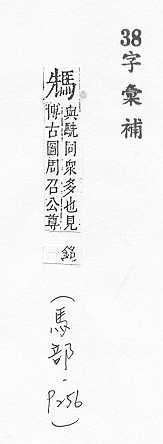 38字彙補
與駪同衆多也見
博古圖周召公尊
(馬部·P256)